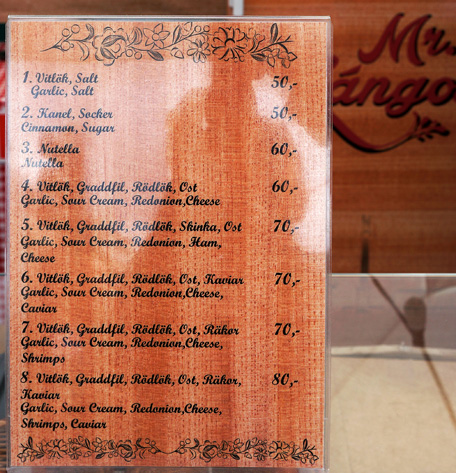 1. Vitlök, Salt 50,-
Garlic, Salt
2. Kanel, Socker 50,-
Cinnamon, Sugar
3. Nutella 60,-
Nutella
4. Vitlök, Graddfil, Rödlök, Ost 60,-
Garlic, Sour Cream, Redonion,Cheese
5. Vitlök, Graddfil, Rödlök, Skinka, Ost 70,-
Garlic, Sour Cream, Redonion, Ham,
Cheese
6. Vitlök, Graddfil, Rödlök, Ost, Kaviar 70,-
Garlic, Sour Cream, Redonion,Cheese,
Caviar
7. Vitlök, Graddfil, Rödlök, Ost, Räkor 70,-
Garlic, Sour Cream, Redonion,Cheese,
Shrimps
8. Vitlök, Graddfil, Rödlök, Ost, Räkor, 80,-
Kaviar
Garlic, Sour Cream, Redonion,Cheese,
Shrimps, Caviar
Mr.